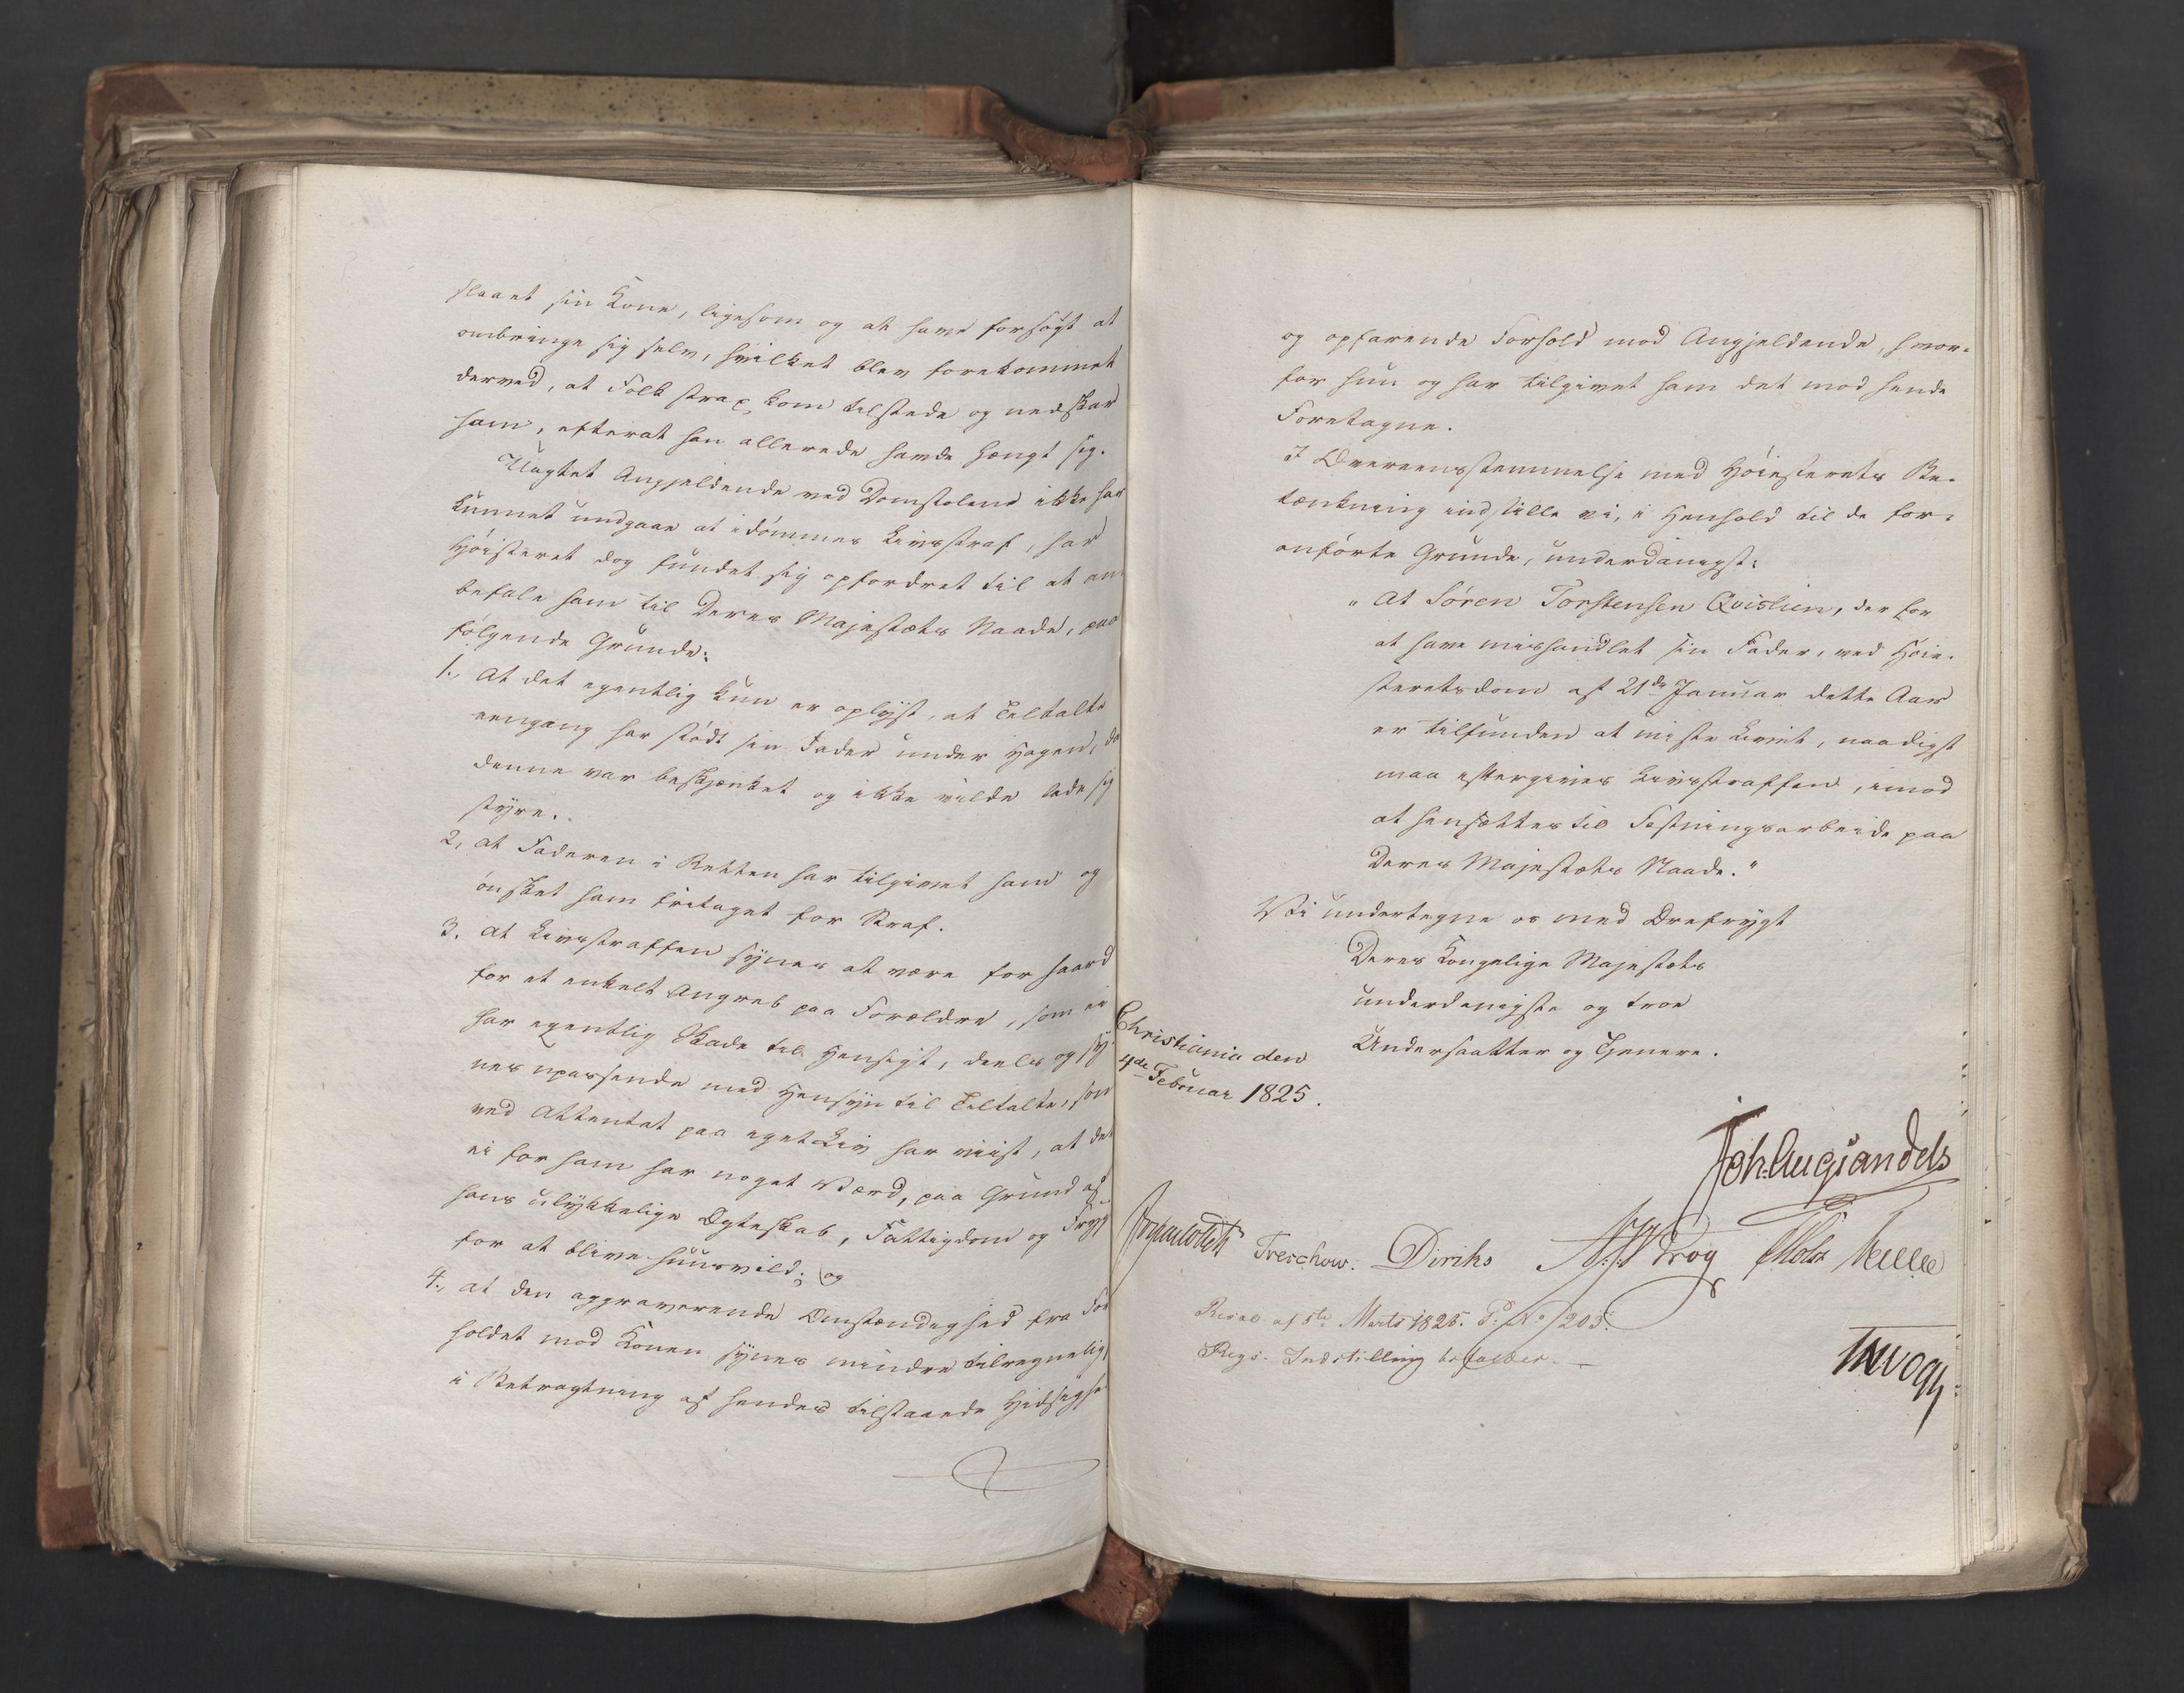 slaaet sin Kone, ligesom og at have forsøgt at
ombringe sig selv, hvilket blev forekommet
derved, at Folk strax kom tilstede og nedskar
ham, efterat han allerede havde hængt sig.
Uagtet Angjeldende ved Domstolene ikke har
kunnet undgaae at idømmes Livsstraf, har
Høiesteret dog fundet sig opfordret til at an-
befale ham til Deres Majestæts Naade, paa
følgende Grunde:
1., At det egentlig kun er oplyst, at Tiltalte
eengang har stødt sin Fader under Hagen, da
denne var beskjænket og ikke vilde lade sig
styre.
2, at Faderen i Retten har tilgivet ham og
ønsket ham fritaget for Straf.
3. at Livsstraffen synes at være for haard
for et enkelt Angreb paa Forældre, som ei
har egentlig Skade til Hensigt, deels og sy-
nes upassende med Hensyn til Tiltalte, som
ved Attentat paa eget Liv har viist, at det
ei for ham har noget Værd, paa Grund af
hans ulykkelige Ægteskab, Fattigdom og Frygt
for at blive huusvild; og
4., at den aggraverende Omstændighed fra For-
holdet mod Konen synes mindre tilregnelig,
i Betragtning af hendes tilstaaede Hidsighed
og opfarende Forhold mod Angjeldende, hvor-
for hun og har tilgivet ham det mod hende
Foretagne.
I Overeensstemmelse med Høiesterets Be-
tænkning indstille vi, i Henhold til de for-
anførte Grunde, underdanigst:
"At Søren Torstensen Qvislien, der for
at have mishandlet sin Fader, ved Høie-
steretsdom af 21de Januar dette Aar
er tilfunden at miste Livet, naadigst
maa eftergives Livsstraffen, imod
at hensættes til Fæstningsarbeide paa
Deres Majestæts Naade."
Vi undertegne os med Ærefrygt
Deres Kongelige Majestæts
underdanigste og troe
Undersaatter og Tjenere.
Christiania den
4de Februar 1825.
Joh. Aug. Sandels
Treschow. Diriks Krog
Resol. af 5te Marts 1825. P: No 203.
Regs. Indstilling bifaldes. —
Vogt